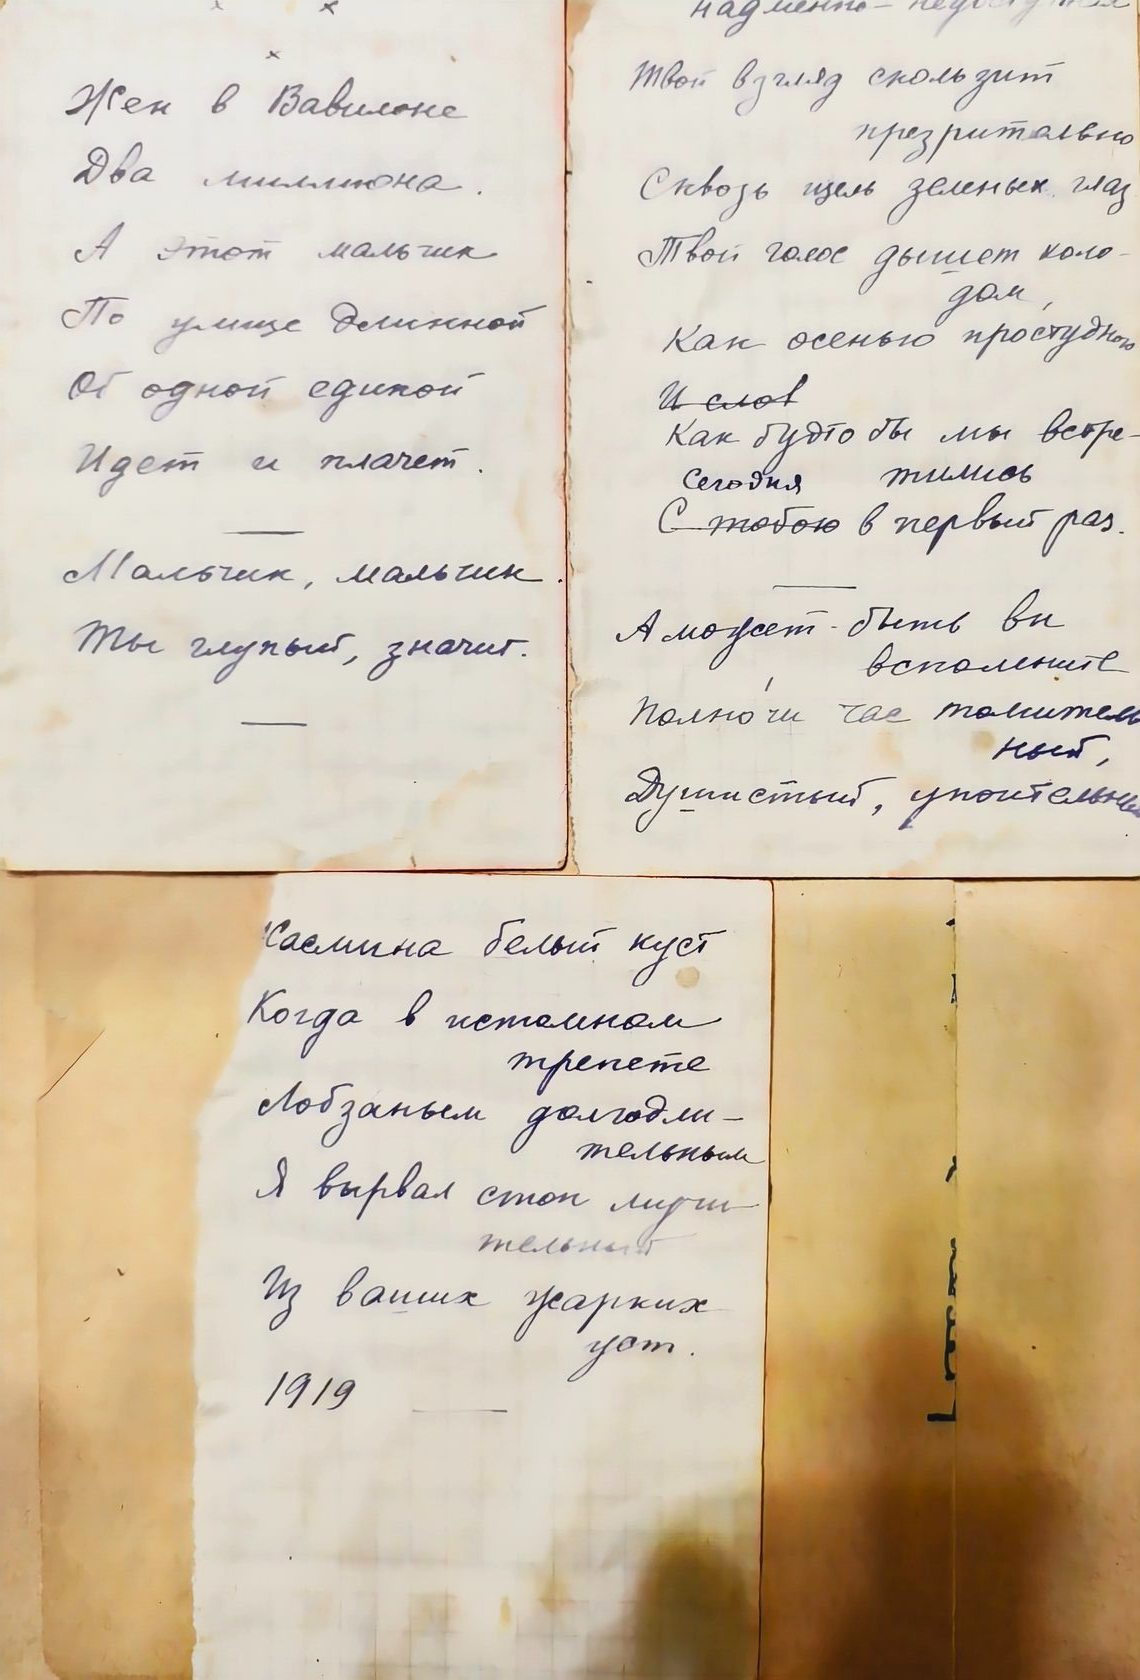 х х
х
Жен в Вавилоне
Два миллиона.
А этот мальчик
По улице длинной
Об одной единой
Идет и плачет.
Мальчик, мальчик.
Ты глупый, значит.
надменно-недоступная
Твой взгляд скользит
презрительно
Сквозь щель зеленых глаз
Твой голос дышет холо-
дом,
Как осенью простудною
И слов
Как будто бы мы встре-
сегодня тились
С тобою в первый раз.
А может-быть вы
вспомните
Полно́чи час томитель
ный,
Душистый, упоительный
Жасмина белый куст
Когда в истомном
трепете
Лобзаньем долгодли-
тельным
Я вырвал стон мучи
тельный
Из ваших жарких
уст.
1919